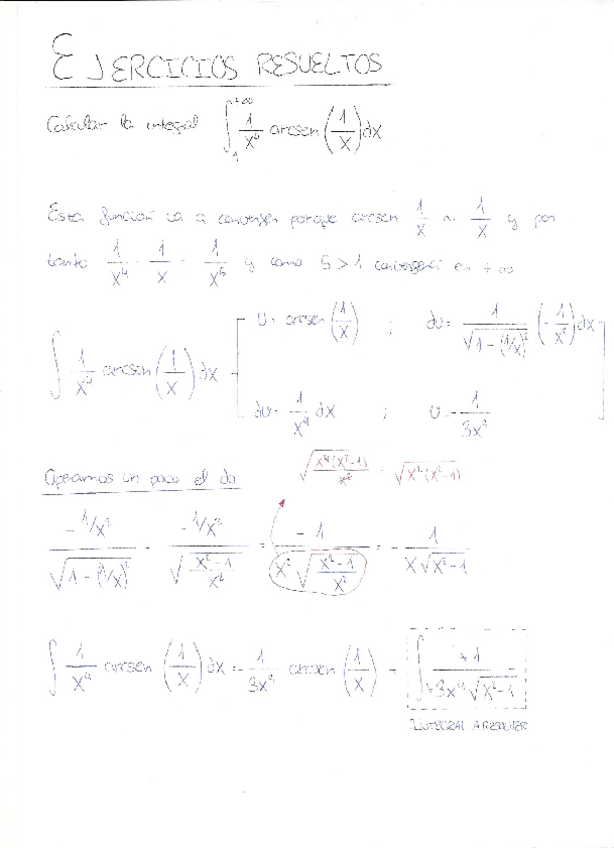 EJERCICIOS RESUELTOS
Calcular la integral ∫₁^{+∞} 1/x⁴ arcsen(1/x)dx
Esta función va a converger porque arcsen 1/x ~ 1/x y por
tanto 1/x⁴ · 1/x = 1/x⁵ y como 5 > 1 convergerá en +∞
∫ 1/x⁴ arcsen(1/x) dx
u = arcsen(1/x) ; du = 1/√(1-(1/x)²) (-1/x²)dx
dv = 1/x⁴ dx ; v = -1/3x³
Operamos un poco el du
√(x⁴(x²-1)/x²) = √(x²(x²-1))
(-1/x²)/√(1-(1/x)²) = (-1/x²)/√((x²-1)/x²) = -1/(x²√((x²-1)/x²)) = -1/(x√(x²-1))
∫ 1/x⁴ arcsen(1/x) dx = -1/3x³ arcsen(1/x) - ∫ +1/(+3x⁴√(x²-1))
INTEGRAL A RESOLVER